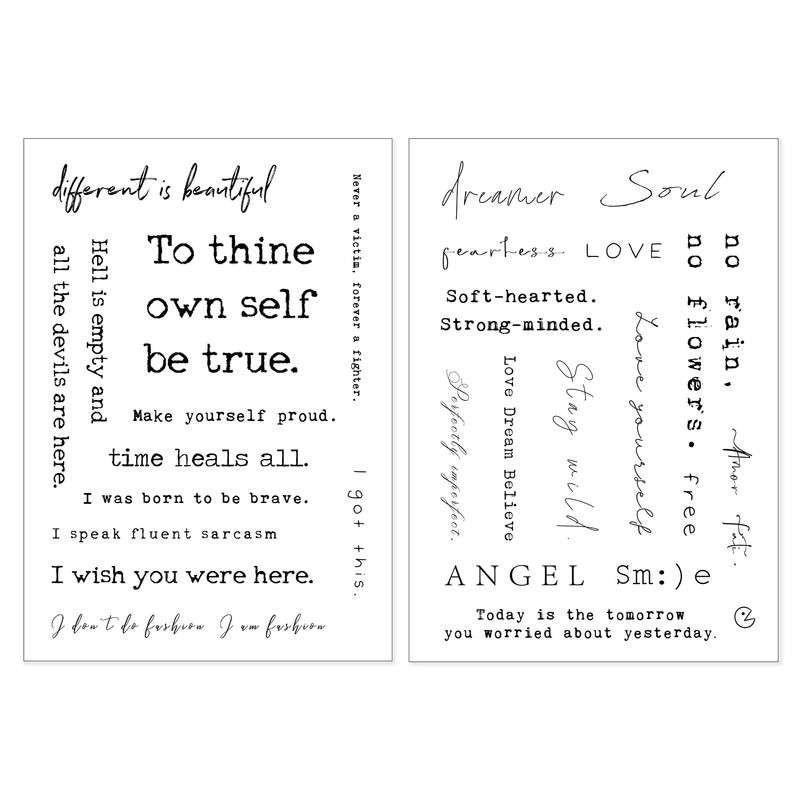 different is beautiful
Never a victim, forever a fighter.
Hell is empty and
all the devils are here.
To thine
own self
be true.
Make yourself proud.
time heals all.
I was born to be brave.
I got this.
I speak fluent sarcasm
I wish you were here.
I don't do fashion I am fashion
dreamer Soul
fearless LOVE
no rain,
no flowers.
Soft-hearted.
Strong-minded.
Love yourself
Stay wild.
Love Dream Believe
Perfectly imperfect.
Amor fati.
free
ANGEL Sm:)e
Today is the tomorrow
you worried about yesterday.